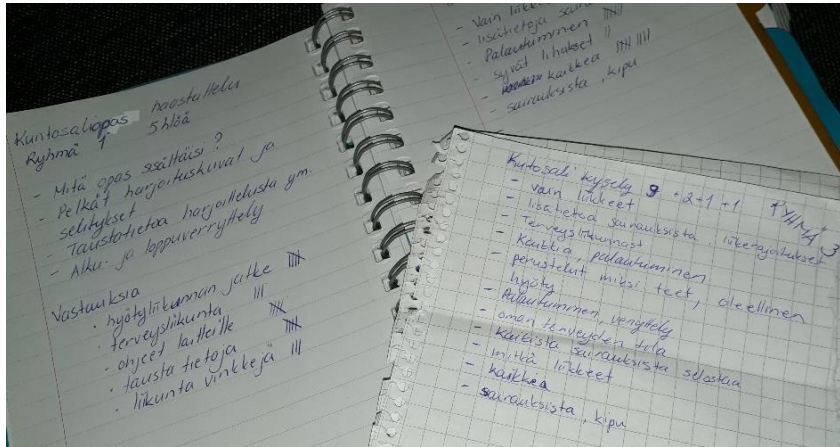 Kuntosaliopas haastattelu
Ryhmä 1 5 hlöä
- Mitä opas sisältäisi?
- Pelkät harjoituskuvat ja
selitykset
- Taustatietoa harjoittelusta ym.
- Alku- ja loppuverryttely
Vastauksia
· hyötyliikunnan jatke
· terveysliikunta |||
· ohjeet laitteille
· tausta tietoja
· liikunta vinkkejä |||
- Vain
- lisätietoja
- Palautuminen
- syvät lihakset ||
- kaikkea
- sairauksista, kipu
Kuntosali kysely 9 +2+1+1 RYHMÄ 3
- vain liikkeet
- lisätietoa sairauksista, liikerajoitukset
- Terveysliikunnast
- Kaikkia, palautuminen
- perustelut miksi teet, oleellinen
hyöty
- Palautuminen, venyttely
- oman terveyden tila
- Kaikista sairauksista selostaa
- mitkä liikkeet
- kaikkea
- sairauksista, kipu